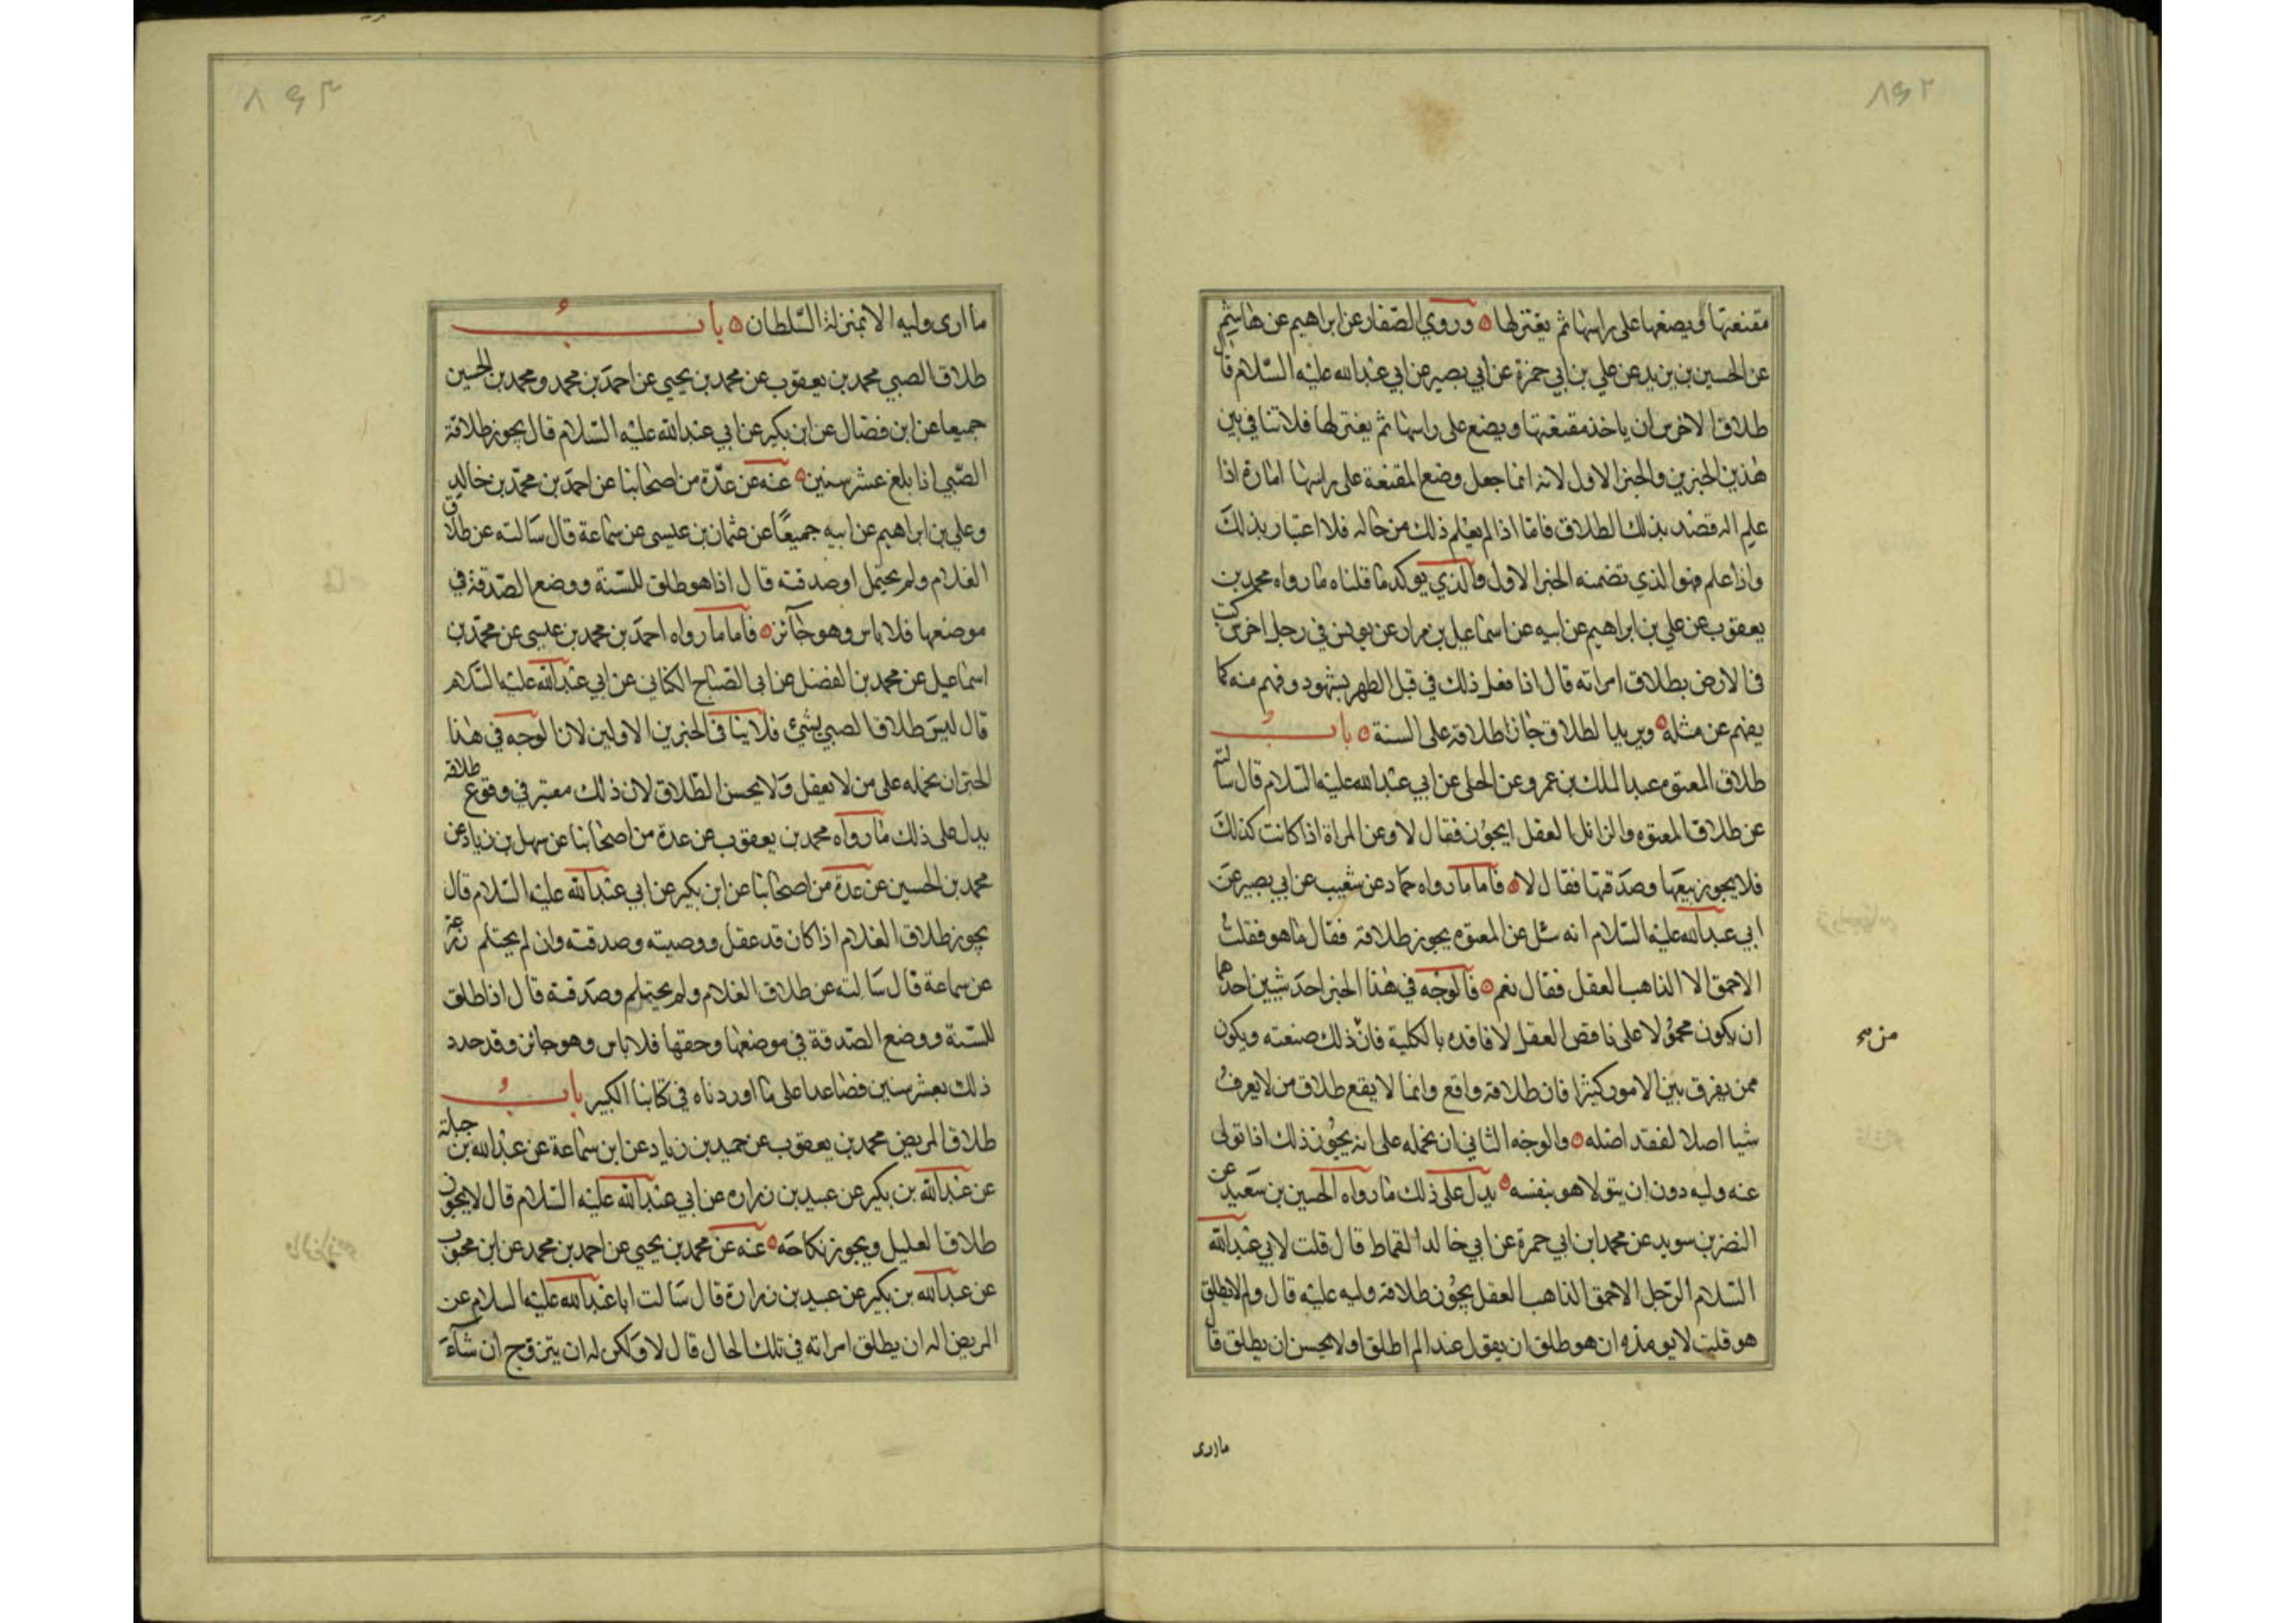 ٨٩٢
مقنعتها ويصنعها على راسها ثم يعتزلها ٥ وروي الصفار عن ابراهيم عن هاشم
عن الحسين بن يزيد عن علي بن ابي حمزة عن ابي بصير عن ابي عبد الله عليه السلام قال
طلاق الاخرس ان ياخذ مقنعتها ويضع على راسها ثم يعتزلها فلا تنافي بين
هذين الخبرين والخبر الاول لانه انما جعل وضع المقنعة على راسها امارة اذا
علم انه قصد بذلك الطلاق فاما اذا لم يعلم ذلك من حاله فلا اعتبار بذلك
واذا علم فهو الذي تضمنه الخبر الاول والذي يوكد ما قلناه ما رواه محمد بن
يعقوب عن علي بن ابراهيم عن ابيه عن اسماعيل بن مرار عن يونس في رجل اخرس كتب
في الارض بطلاق امراته قال اذا فعل ذلك في قبل الطهر بشهود وفهم منه كما
يفهم عن مثله ٥ ويريد الطلاق جاز طلاقه على السنة ٥ باب
طلاق المعتوه عبد الملك بن عمرو عن الحلبي عن ابي عبد الله عليه السلام قال سالته
عن طلاق المعتوه والزائل العقل ايجوز فقال لا وعن المراة اذا كانت كذلك
فلا يجوز بيعها وصدقتها فقال لا ٥ فاما ما رواه حماد عن شعيب عن ابي بصير عن
ابي عبد الله عليه السلام انه سئل عن المعتوه يجوز طلاقه فقال ما هو فقلت
الاحمق الا الذاهب العقل فقال نعم ٥ فالوجه في هذا الخبر احد شيئين احدهما
ان يكون محمولا على ناقص العقل لا فاقده بالكلية فان ذلك صنعته ويكون
ممن يفرق بين الامور كثيرا فان طلاقه واقع وانما لا يقع طلاق من لا يعرف
شيا اصلا لفقد اصله ٥ والوجه الثاني ان نحمله على انه يجوز ذلك اذا تولى
عنه وليه دون ان يتولا هو بنفسه ٥ يدل على ذلك ما رواه الحسين بن سعيد عن
النضر بن سويد عن محمد ابن ابي حمزة عن ابي خالد القماط قال قلت لابي عبد الله
السلام الرجل الاحمق الذاهب العقل يجوز طلاقه وليه عليه قال ولم لا يطلق
هو قلت لا يومذه ان هو طلق ان يقول عند الم اطلق او لا يحسن ان يطلق قال
ما ارى
ما ارى وليه الا بمنزلة السلطان ٥ باب
طلاق الصبي محمد بن يعقوب عن محمد بن يحيى عن احمد بن محمد ومحمد بن الحسين
جميعا عن ابن فضال عن ابن بكير عن ابي عبد الله عليه السلام قال يجوز طلاقة
الصبي اذا بلغ عشر سنين ٥ عنه عن عدة من اصحابنا عن احمد بن محمد بن خالد
وعلي بن ابراهيم عن ابيه جميعا عن عثمان بن عيسى عن سماعة قال سالته عن طلاق
الغلام ولم يحتمل او صدقته قال اذا هو طلق للسنة ووضع الصدقة في
موضعها فلا باس وهو جائز ٥ فاما ما رواه احمد بن محمد بن عيسى عن محمد بن
اسماعيل عن محمد بن الفضل عن ابي الصباح الكناني عن ابي عبد الله عليه السلام
قال ليس طلاق الصبي بشئ فلا ينافي الخبرين الاولين لان الوجه في هذا
الخبر ان نحمله على من لا يعقل ولا يحسن الطلاق لان ذلك معتبر في وقوع طلاقه
يدل على ذلك ما رواه محمد بن يعقوب عن عدة من اصحابنا عن سهل بن زياد عن
محمد بن الحسين عن عدة من اصحابنا عن ابن بكير عن ابي عبد الله عليه السلام قال
يجوز طلاق الغلام اذا كان قد عقل ووصيته وصدقته وان لم يحتلم
عن سماعة قال سالته عن طلاق الغلام ولم يحتلم وصدقته قال اذا طلق
للسنة ووضع الصدقة في موضعها وحقها فلا باس وهو جائز وقد حدد
ذلك بعشر سنين فصاعدا على ما اوردناه في كتابنا الكبير باب
طلاق المريض محمد بن يعقوب عن حميد بن زياد عن ابن سماعة عن عبد الله بن جبلة
عن عبد الله بن بكير عن عبيد بن زرارة عن ابي عبد الله عليه السلام قال لا يجوز
طلاق العليل ويجوز نكاحه ٥ عنه عن محمد بن يحيى عن احمد بن محمد عن ابن محبوب
عن عبد الله بن بكير عن عبيد بن زرارة قال سالت ابا عبد الله عليه السلام عن
المريض اله ان يطلق امراته في تلك الحال قال لا ولكن له ان يتزوج ان شاء